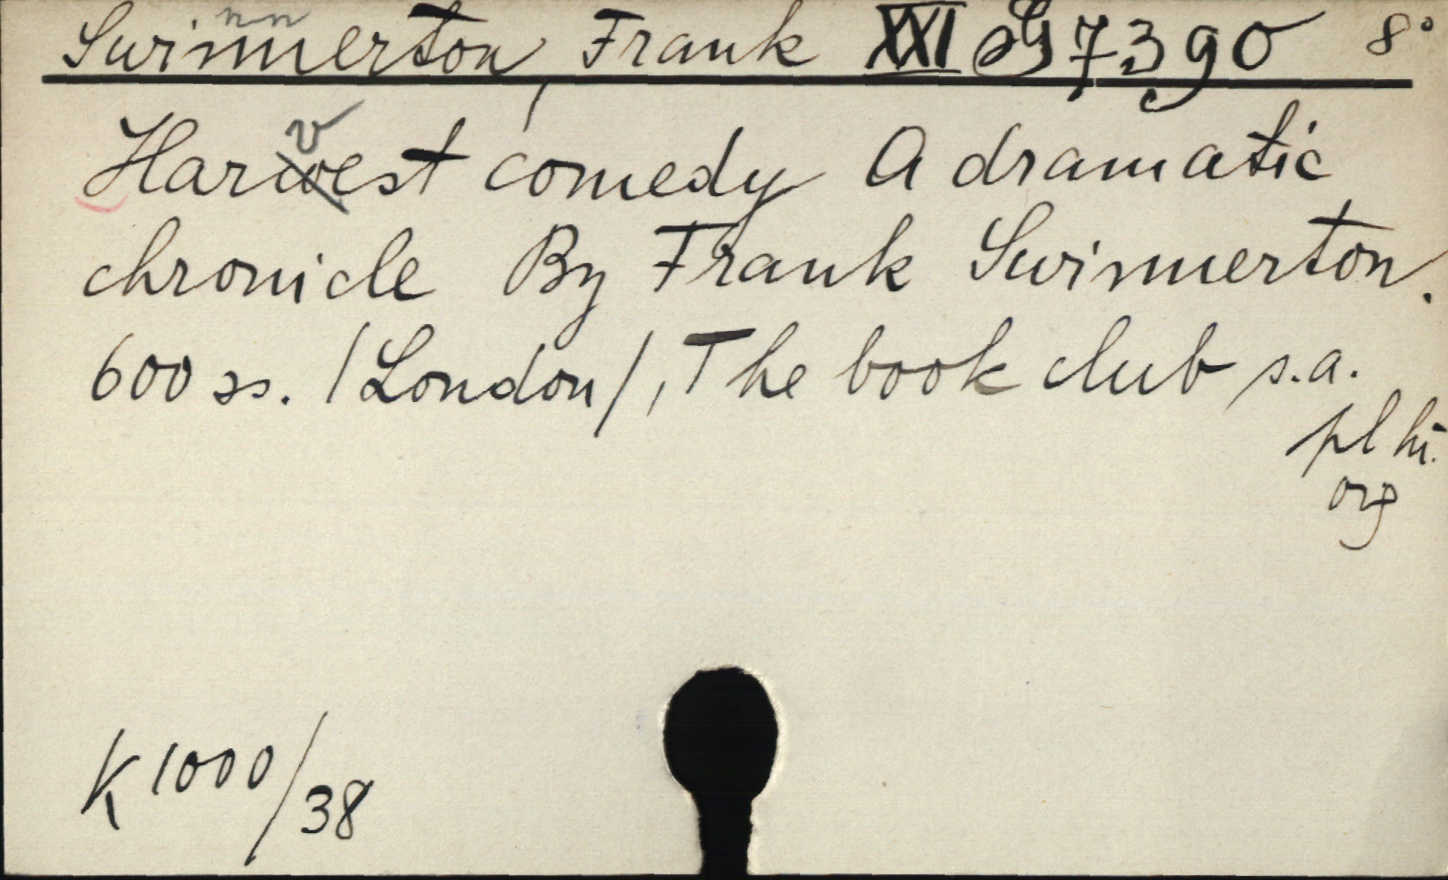 Swinnerton, Frank XXI G 7390 8°
Harvest comedy A dramatic
chronicle By Frank Swinnerton.
600 ss. /London/, The book club s.a.
pl hi.
org
K 1000/38